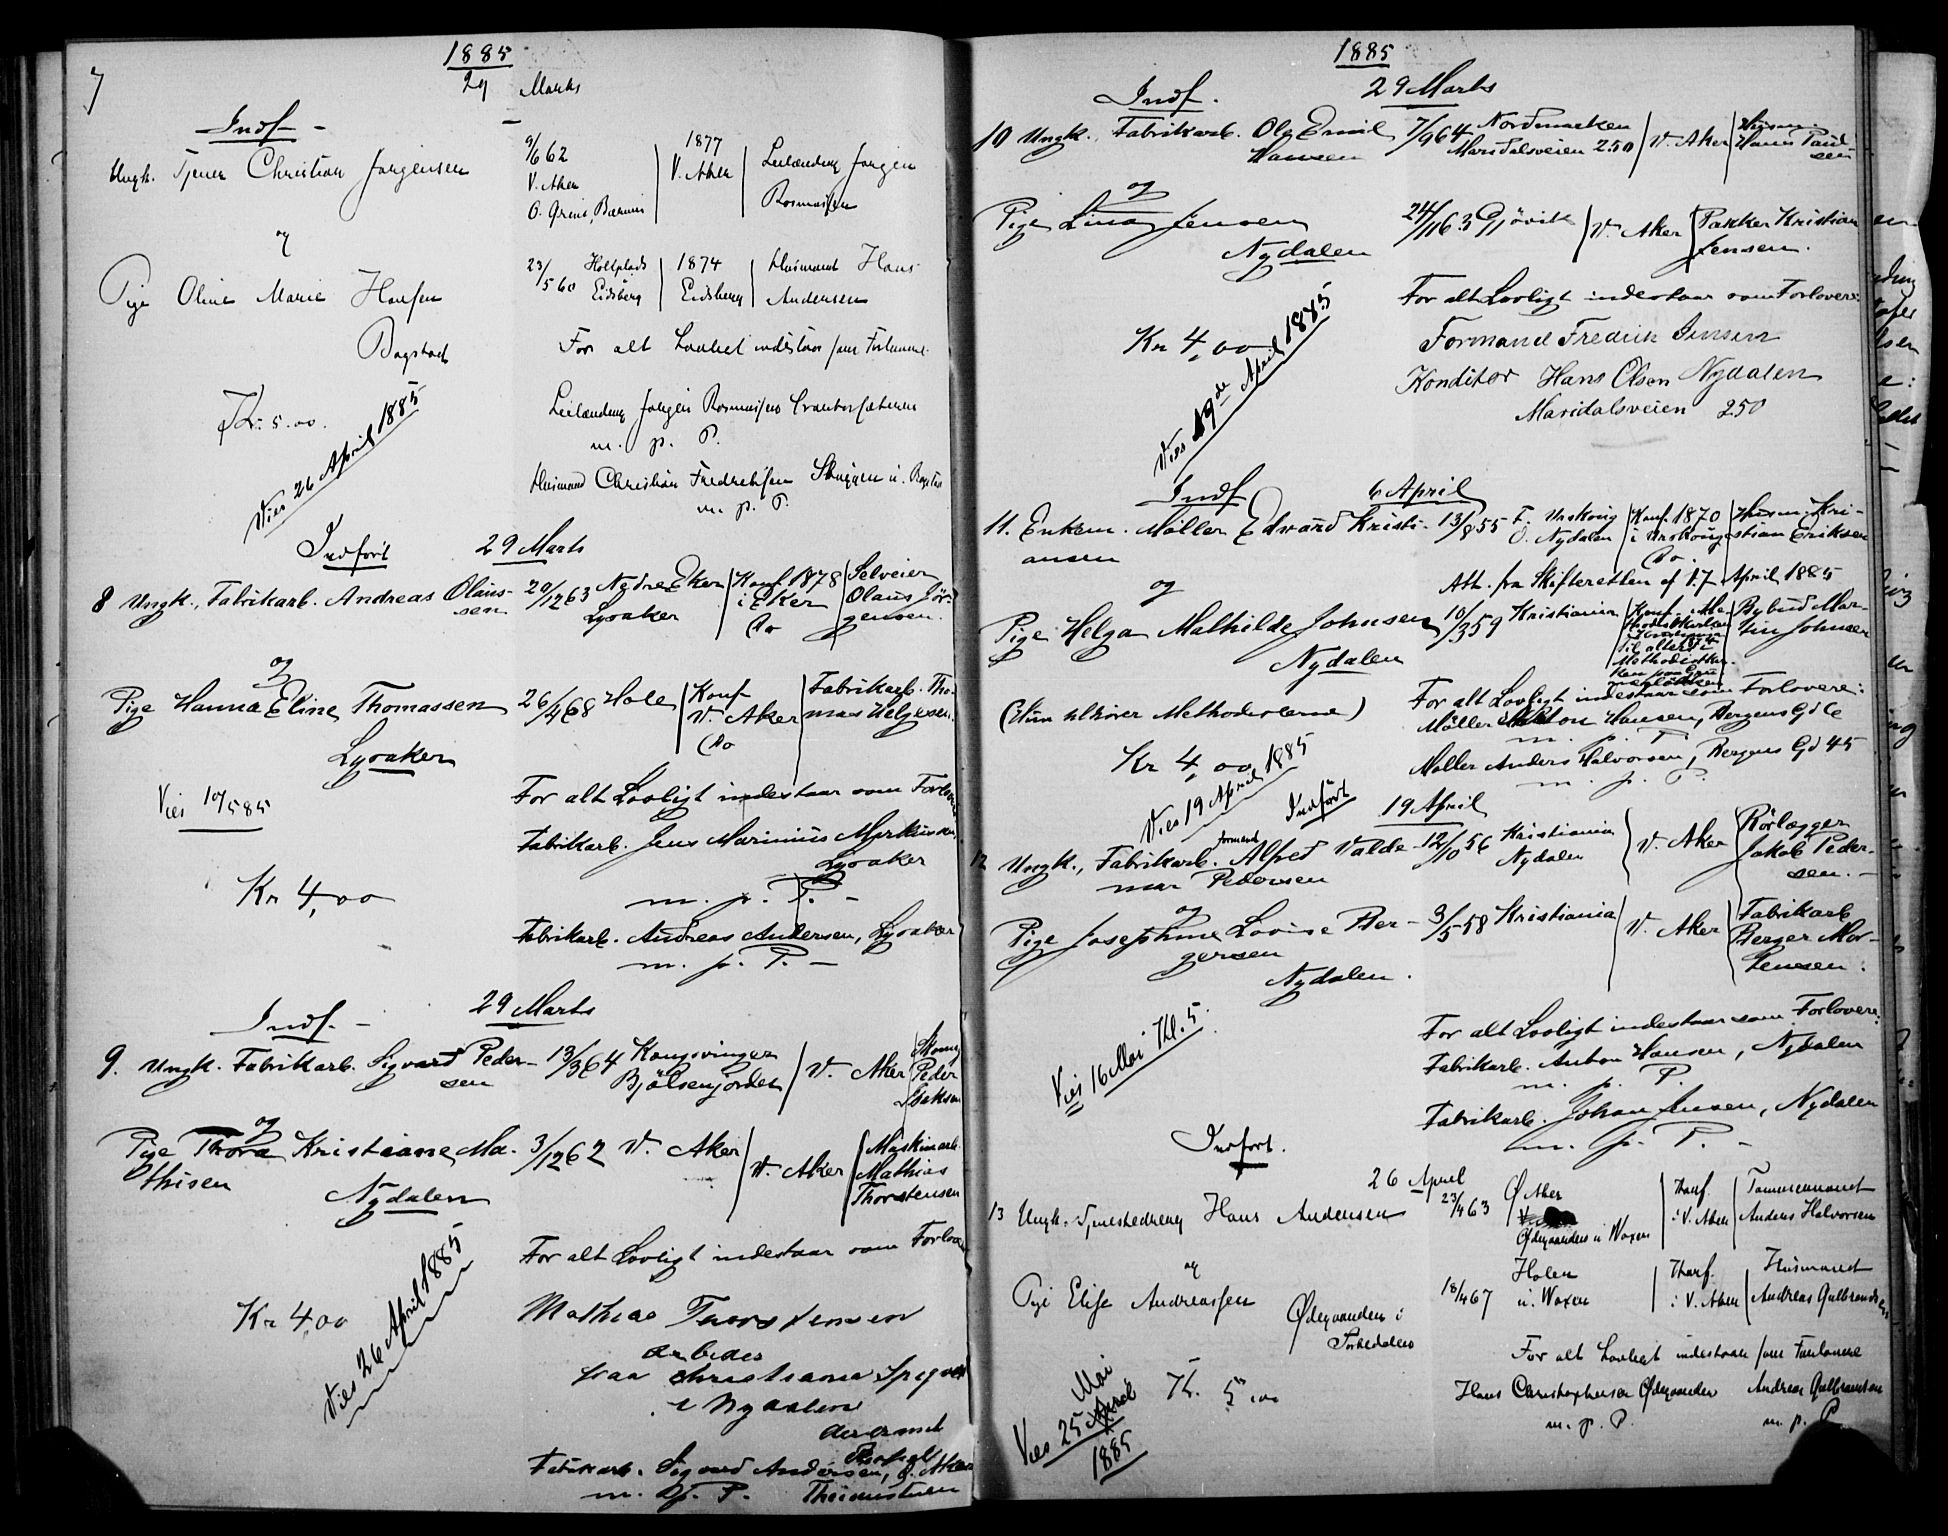 1885
29 Marts
7
Indf
Ungk. Tjener Christian Jørgensen
9/6 62
V. Aker
O. Grini, Bærum
1877
V. Aker
Leilænding Jørgen
Rasmussen
og
Pige Oline Marie Hansen
Bogstad
23/5 60
Eidsberg
1874
Eidsberg
Husmand Hans
Andersen
For alt Lovligt indestaar som Forlovere
Kr. 5.00.
Leilænding Jørgen Rasmussen
m. p. P.
Vies 26 April 1885
Husmand Christian Fredriksen
m. p. P.
Indført
29 Marts
8 Ungk., Fabrikarb. Andreas Olaus-
sen
20/12 63 Nedre Eker
Lysaker
Konf. 1878
i Eker
Co
Selveier
Olaus Jør-
gensen.
og
Pige Hanna Eline Thomassen
Lysaker
26/4 68 Hole
Konf
V. Aker
Co
Fabrikarb. Tho-
mas Helgesen.
Vies 10/5 85
For alt Lovligt indestaar som
Fabrikarb. Jens Marinius
Lysaker
Kr 4,00
m. p. P. -
Fabrikarb. Andreas Andersen, Lysaker
m. p. P. -
Indf. -
29 Marts
9. Ungk. Fabrikarb. Sigvard Peder-
sen
13/3 64 Kongsvinger
Bjølsenjordet
V. Aker
Peder
Isaksen
og
Pige Thora Kristiane Ma-
thisen
Nydalen
3/12 62 V. Aker
V. Aker
Maskinarb.
Mathias
Thorstensen
For alt Lovligt indestaar som
Kr 4,00
Vies 26 April 1885
Mathias Thorstensen
arbeder
paa Christiania
i Nydalen
Fabrikarb. Sigvard Andersen,
m. p. P.
1885
Indf.
29 Marts
10 Ungk., Fabrikarb. Ole Emil
Hansen
7/9 64 Nordmarken
Maridalsveien 250
V. Aker
Husm.
Hans Paul-
sen
og
Pige Lina Jensen
Nydalen
24/11 63 Gjøvik
V. Aker
Pakker Kristian
Jensen.
For alt Lovligt indestaar som Forlovere:
Kr 4,00
Vies 19de April 1885
Formand Fredrik Jensen
Konditor Hans Olsen Nydalen
Maridalsveien 250
Indf
6 April
11. Enkem. Møller Edvard Kristi-
ansen
13/8 55 F. Urskoug
O. Nydalen
Konf. 1870
i Urskoug
Co
Husm. Kri-
stian Eriksen
og
Att. fra Skifteretten af D. 7 April 1885
Pige Helga Mathilde Johnsen
Nydalen
10/3 59 Kristiania
Bybud Mar-
tin Johnsen
(Hun tilhører Methodisterne)
For alt Lovligt indestaar som Forlovere:
Møller Hansen, Bergens Gd
m. p. P.
Kr 4,00
Møller Anders Halvorsen, Bergens Gd 45
m. p. P.
Vies 19 April 1885
Indført
19 April
12 Ungk., Fabrikarb. formand Alfred Valde-
mar Pedersen
12/10 56 Kristiania
Nydalen
V. Aker
Rørlægger
Jakob Peder-
sen. -
og
Pige Josephine Lovise Ber-
gersen
Nydalen.
3/5 58 Kristiania
V. Aker
Fabrikarb
Berger Mor-
tensen.
Vies 16 Mai Kl. 5.
For alt Lovligt indestaar som Forlovere:
Fabrikarb. Anton Hansen, Nydalen
m. p. P.
Fabrikarb. Johan Jensen, Nydalen
m. p. P. -
Indført.
26 April
13 Ungk. Tjenestedreng Hans Andersen
23/4 63
Ø Aker
Konf.
i V. Aker
Tømmermand
Anders Halvorsen
og
Pige Elise Andreassen
Ødegaarden i
Sørkedalen
18/4 67
Holen
Konf.
i V. Aker
Husmand
Andreas Gulbrandsen
For alt Lovligt indestaar som Forlovere
Kr. 5.00
Hans Christophersen Ødegaarden
Andreas Gulbrandsen
m. p. P.
m. p. P
Vies 25 Mai
1885